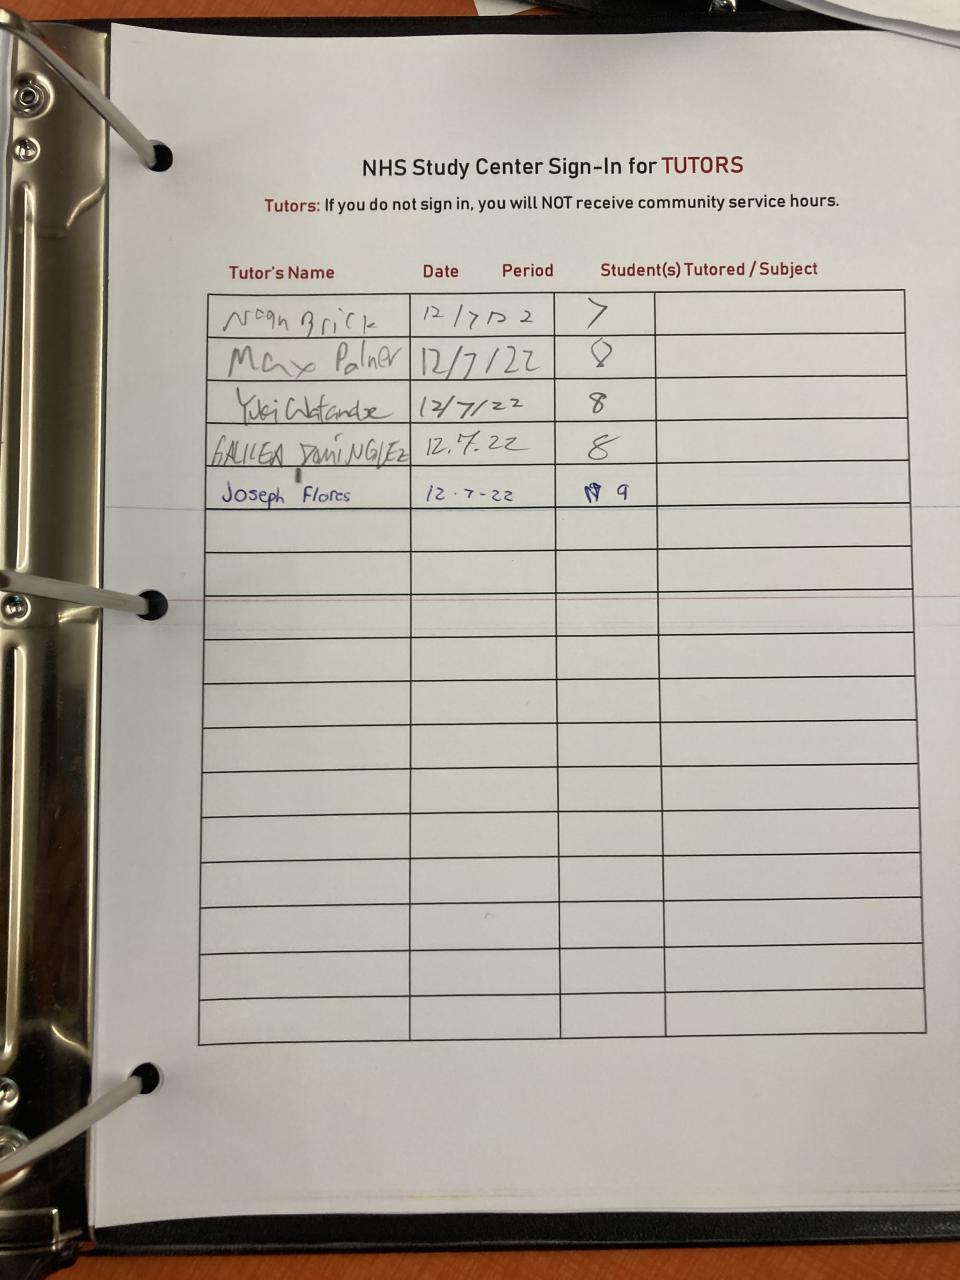 NHS Study Center Sign-In for TUTORS
Tutors: If you do not sign in, you will NOT receive community service hours.
Tutor's Name Date Period Student(s) Tutored / Subject
Brick 12/7 2 7
Max Palner 12/7/22 8
Yuki Watande 12/7/22 8
GALILEA DOMINGUEZ 12.7.22 8
Joseph Flores 12-7-22 9